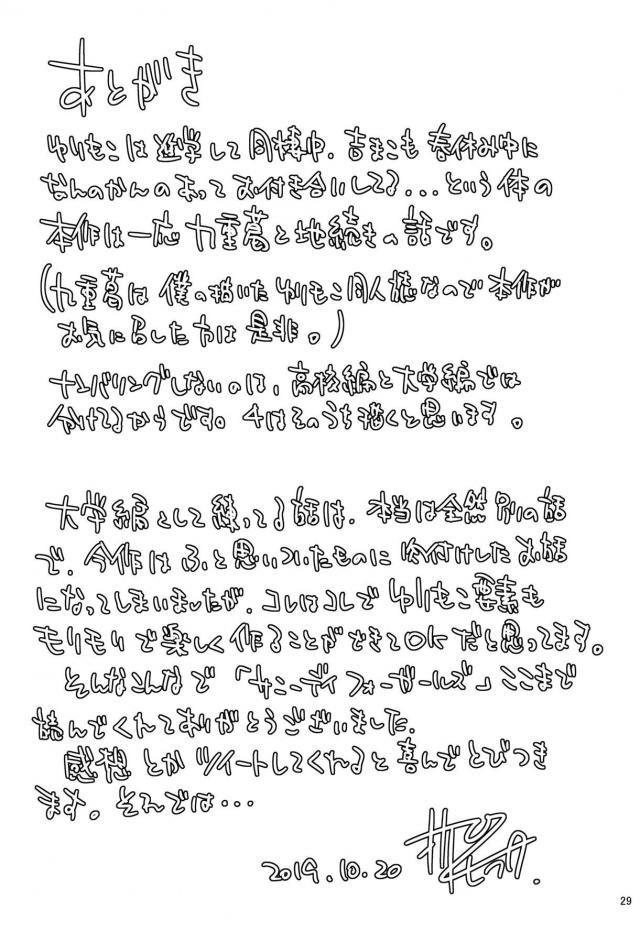 あとがき
ゆりもこは進学して同棲中。吉まこも春休み中に
なんのかんのあってお付き合いしてる...という体の
本作は一応九重葛と地続きの話です。
(九重葛は僕の描いたゆりもこ同人誌なので本作が
お気に召した方は是非。)
ナンバリングしないのは、高校編と大学編では
分けてるからです。4はそのうち描くと思います。
大学編として練ってる話は、本当は全然別の話
で、今作はふと思いついたものに肉付けしたお話
になってしまいましたが、コレはコレでゆりもこ要素も
モリモリで楽しく作ることができてOKだと思ってます。
そんなこんなで「サニーデイフォーガールズ」ここまで
読んでくれてありがとうございました。
感想とかツイートしてくれると喜んでとびつき
ます。それでは...
2019.10.20
29